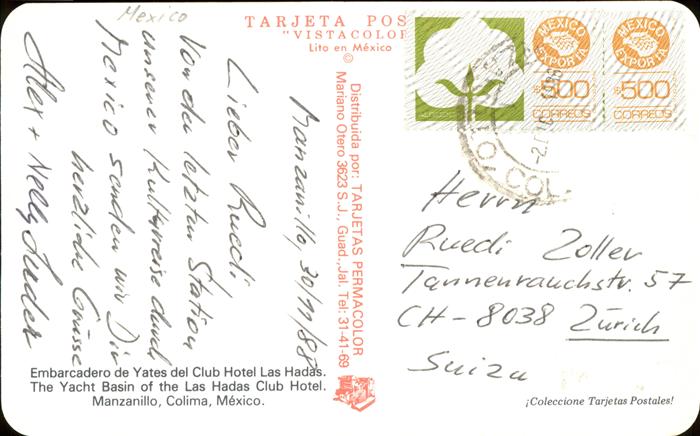 Mexico
TARJETA POS
"VISTACOLOR
Lito en México
©
MEXICO
EXPORTA
$500
CORREOS
MEXICO
EXPORTA
$500
CORREOS
Manzanillo, 30/11/88
Lieber Ruedi,
Von der letzten Station
unserer Kulturreise durch
Mexico senden wir Dir
herzliche Grüsse
Alex + Nelly
Distribuida por: TARJETAS PERMACOLOR
Mariano Otero 3623 S.J., Guad., Jal. Tel: 31-41-69
Herrn
Ruedi Zoller
Tannenrauchstr. 57
CH-8038 Zürich
Suiza
Embarcadero de Yates del Club Hotel Las Hadas.
The Yacht Basin of the Las Hadas Club Hotel.
Manzanillo, Colima, México.
¡Coleccione Tarjetas Postales!